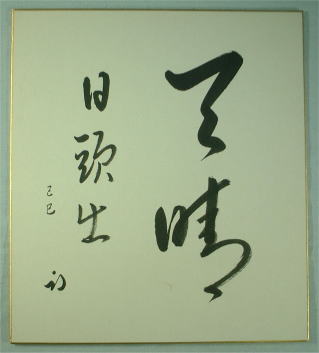 天晴
日頭出
己巳